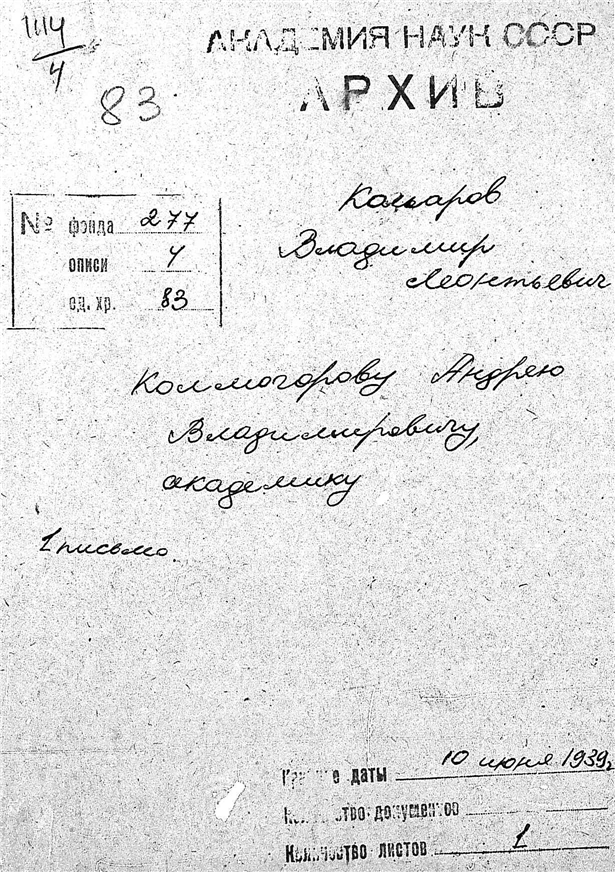 1114
4
83
АКАДЕМИЯ НАУК СССР
АРХИВ
№ фонда 277
описи 4
ед. хр. 83
Комаров
Владимир
Леонтьевич
Колмогорову Андрею
Владимировичу,
академику
1 письмо
Крайние даты 10 июня 1939г.
Количество документов
Количество листов 1